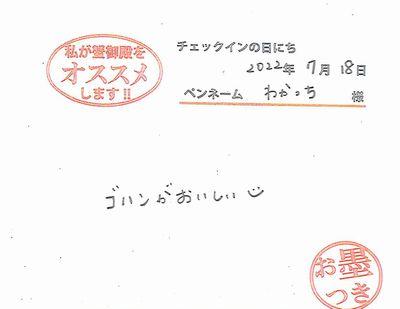 私が蟹御殿を
オススメ
します!!
チェックインの日にち
2022年 7月 18日
ペンネーム わかっち 様
ゴハンがおいしい
お墨
つき